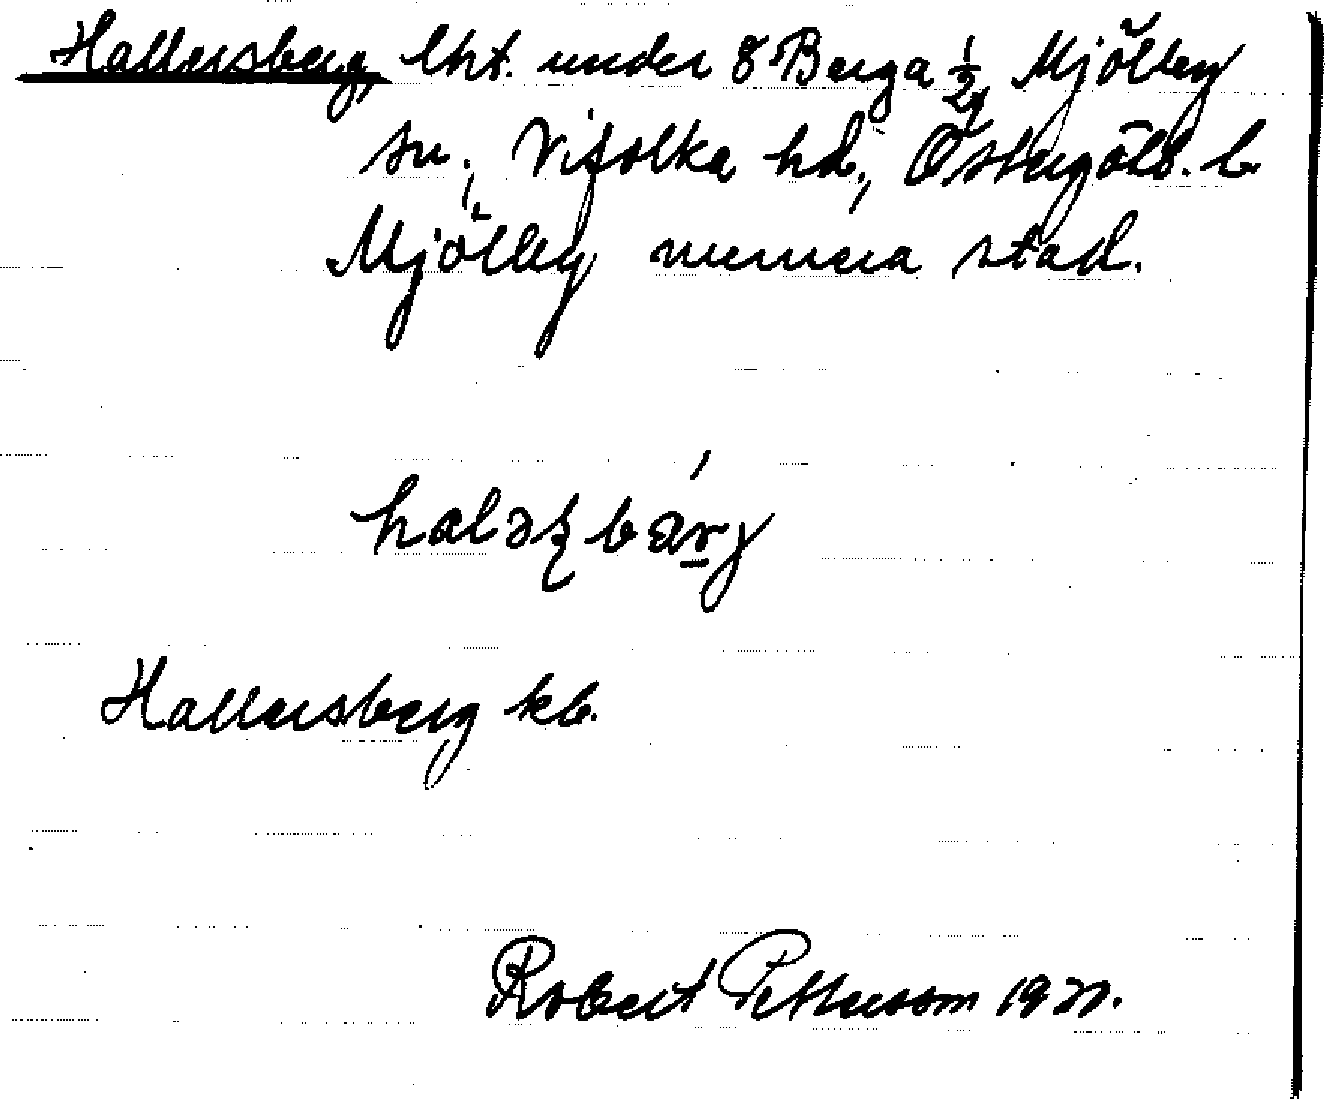 Hallersberg lht. under 8 Berga ½ Mjölby
sn., Vifolka hd., Östergötl. l.
Mjölby numera stad.
haləʂbærj
Hallersberg kb.
Robert Pettersson